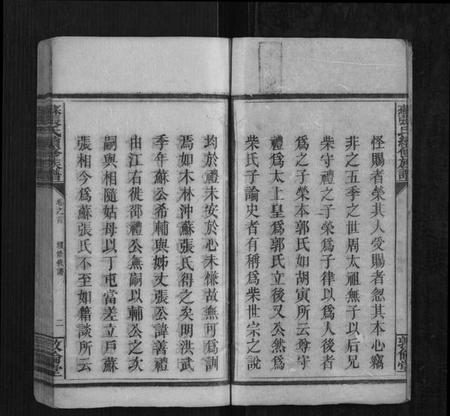 怪賜者榮其人受賜者忽其本心竊
非之五季之世周太祖無子以后兄
柴守禮之子榮為子律以為人後者
柴之子榮本郭氏如胡寅所云尊守
禮為太上皇為郭氏立後又公然為
柴氏子論史者有稱為柴世宗之說
均於禮未安於心未慊故無可為訓
焉如木林沖蘇張氏得之矣明洪武
季年蘇公希輔與姊丈張公諱善禮
由江右徙邵禮公無嗣以輔公之次
嗣與相隨姑母以丁屯當差立戶蘇
張相今為蘇張氏不至如籍談所云
卷之首
續修族譜
二
敦倫堂